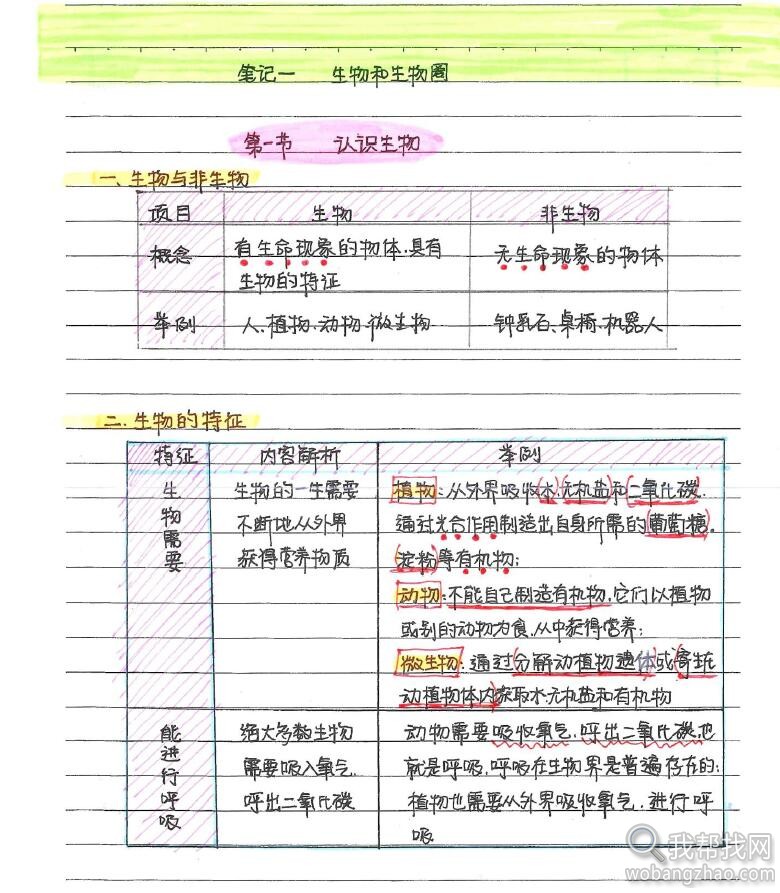 笔记一 生物和生物圈
第一节 认识生物
一、生物与非生物
项目 生物 非生物
概念 有生命现象的物体,具有生物的特征 无生命现象的物体
举例 人、植物、动物、微生物 钟乳石、桌椅、机器人
二、生物的特征
特征 内容解析 举例
生物需要
生物的一生需要
不断地从外界
获得营养物质
植物:从外界吸收(水)(无机盐)和(二氧化碳),
通过光合作用制造出自身所需的(葡萄糖,
淀粉)等有机物;
动物:不能自己制造有机物,它们以植物
或别的动物为食,从中获得营养;
微生物:通过(分解动植物遗体)或(寄生在
动植物体内)获取水、无机盐和有机物
能进行呼吸
绝大多数生物
需要吸入氧气,
呼出二氧化碳
动物需要吸收氧气,呼出二氧化碳,也
就是呼吸,呼吸在生物界是普遍存在的;
植物也需要从外界吸收氧气,进行呼
吸
我帮找网
wobangzhao.com